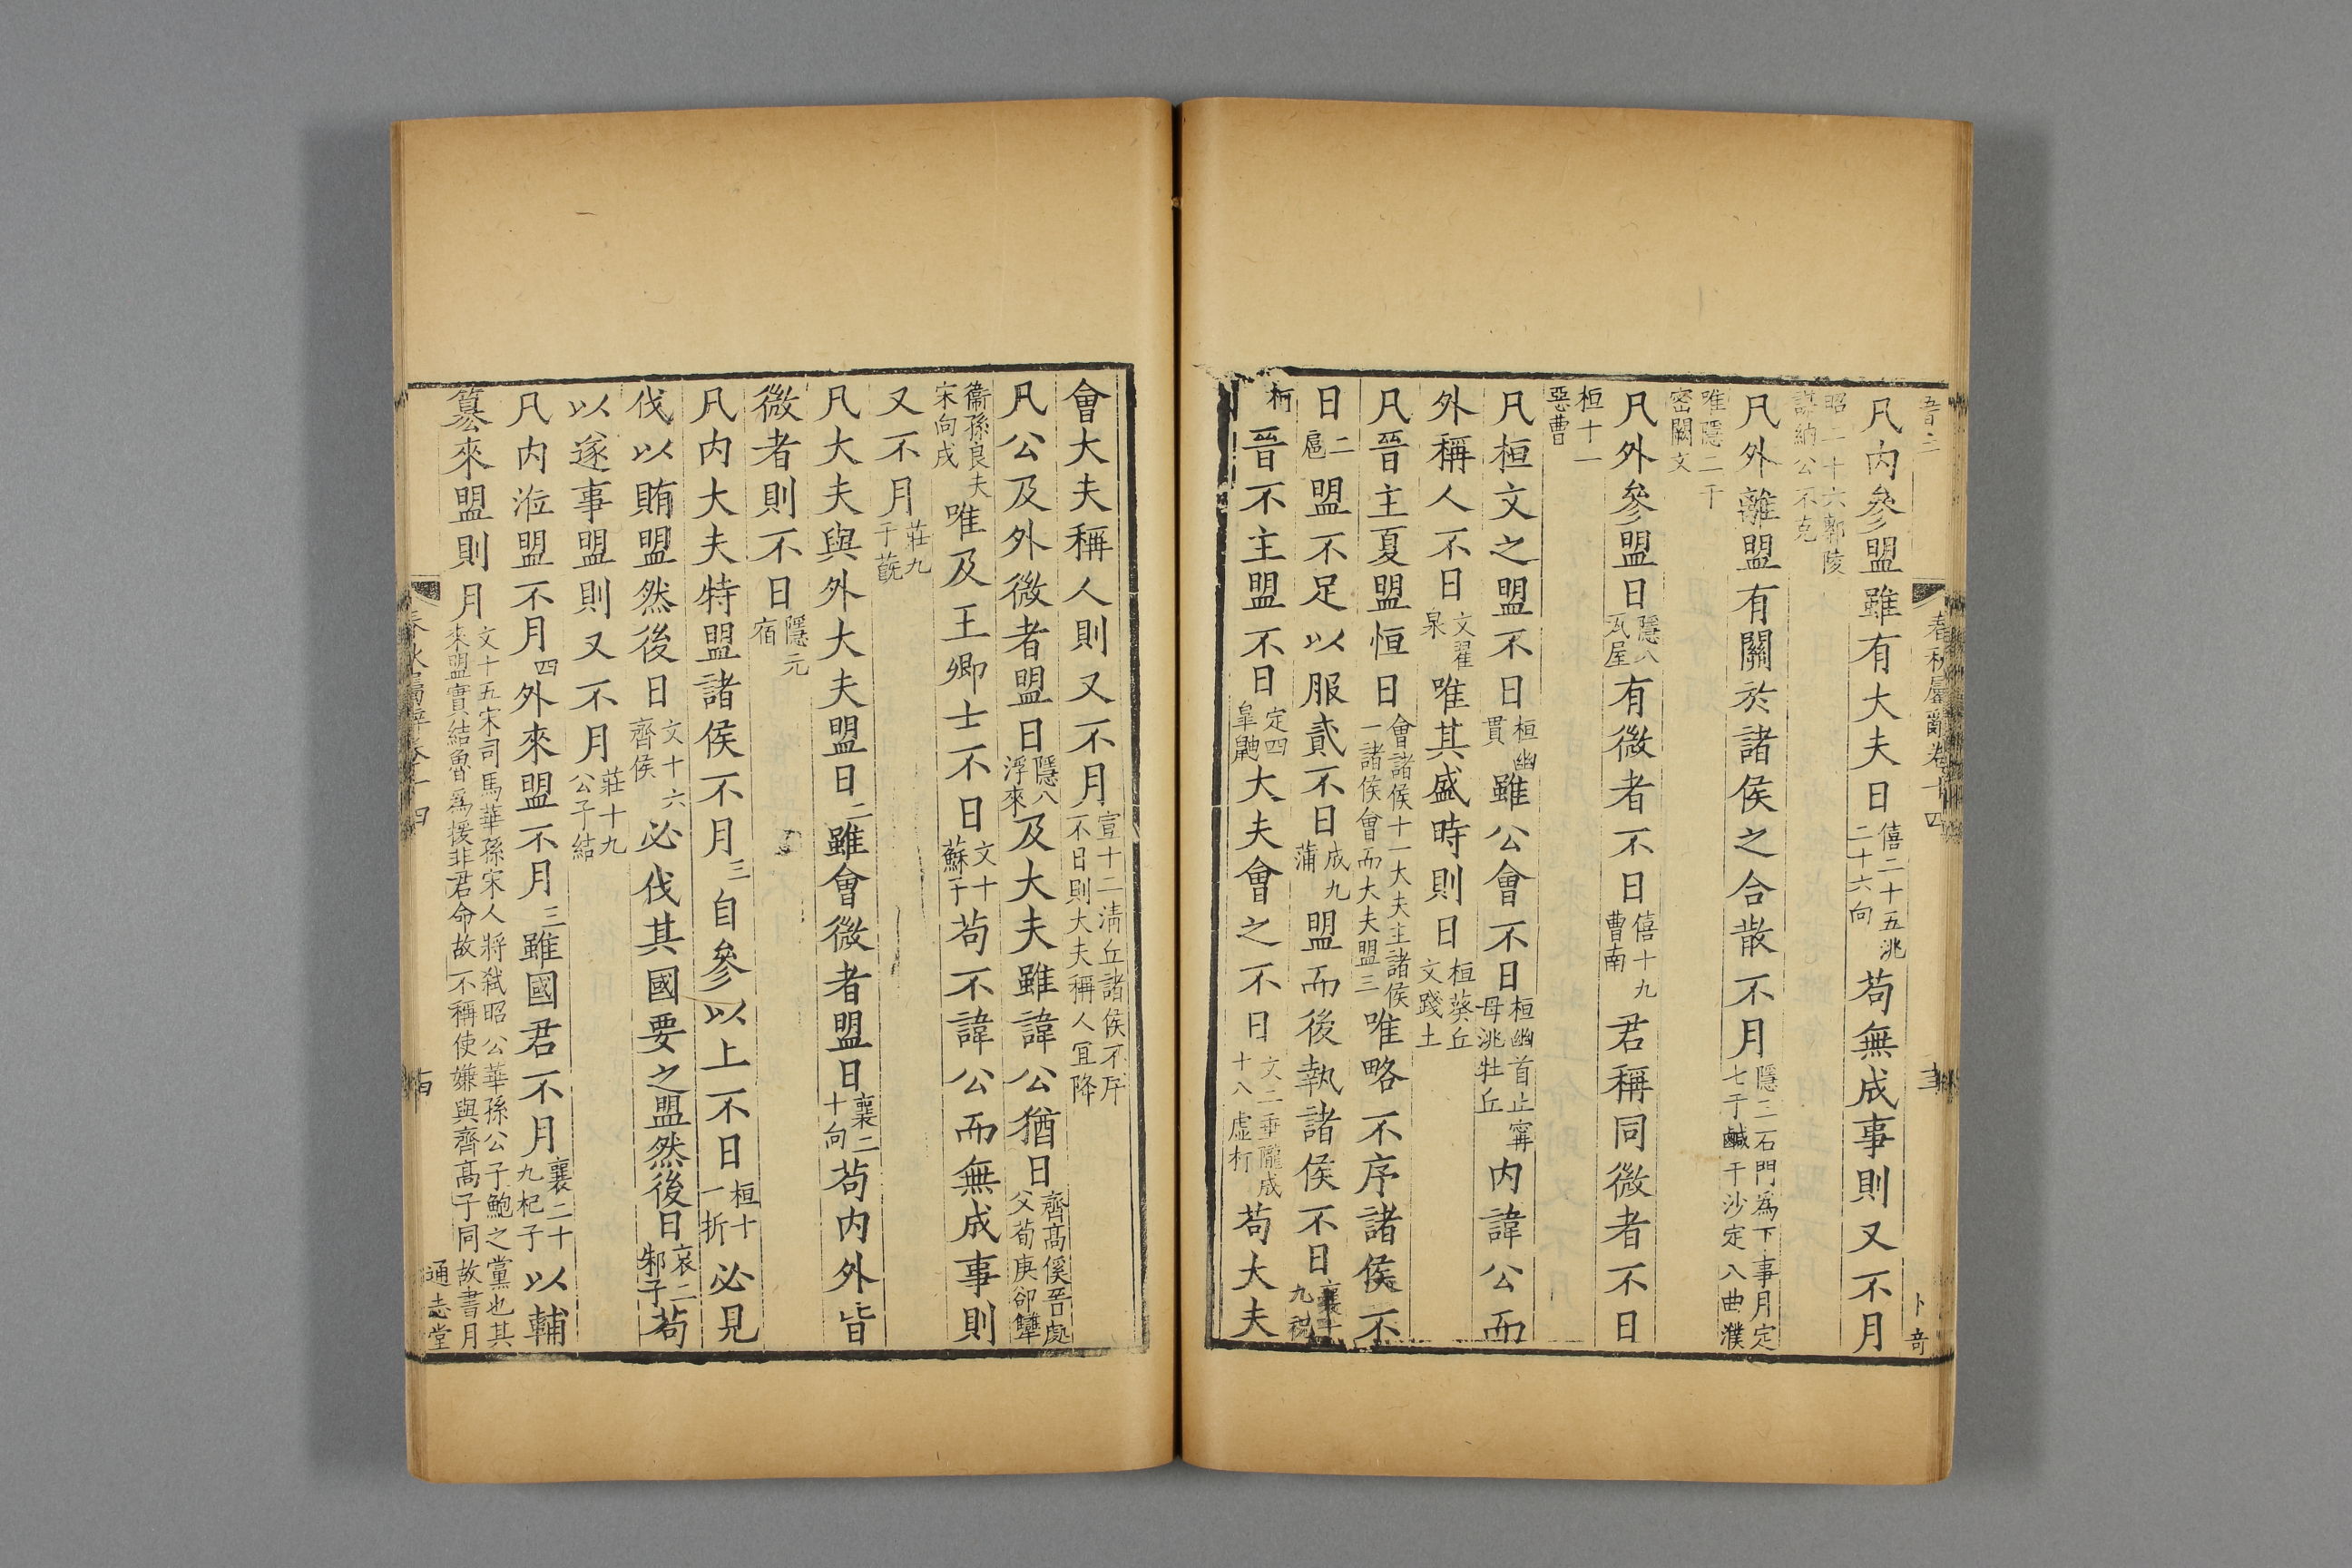 春秋屬辭卷十四
凡內參盟雖有大夫日僖二十五洮二十六向苟無成事則又不月
昭二十六鄟陵謀納公不克
凡外離盟有關於諸侯之合散不月隱三石門爲下事月定七于鹹于沙定八曲濮
唯隱二于密闕文
凡外參盟日隱八瓦屋有微者不日僖十九曹南君稱同微者不日
桓十一惡曹
凡桓文之盟不日桓幽貫雖公會不日桓幽首止甯母洮牡丘内諱公而
外稱人不日文翟泉唯其盛時則日桓葵丘文踐土
凡晉主夏盟恒日會諸侯十一大夫主諸侯一諸侯會而大夫盟三唯略不序諸侯不
日二扈盟不足以服貳不日成九蒲盟而後執諸侯不日襄十九祝
柯晉不主盟不日定四皐鼬大夫會之不日文二垂隴成十八虛朾苟大夫
卜奇
會大夫稱人則又不月宣十二淸丘諸侯不序不日則大夫稱人宜降
凡公及外微者盟日隱八浮來及大夫雖諱公猶日齊高傒晉處父荀庚卻犫
衞孫良夫宋向戌唯及王卿士不日文十蘇子苟不諱公而無成事則
又不月莊九于蔇
凡大夫與外大夫盟日二雖會微者盟日襄二十向苟内外皆
微者則不日隱元宿
凡内大夫特盟諸侯不月三自參以上不日桓十一折必見
伐以賄盟然後日文十六齊侯必伐其國要之盟然後日哀二邾子苟
以遂事盟則又不月莊十九公子結
凡内涖盟不月四外來盟不月三雖國君不月襄二十九杞子以輔
簒來盟則月文十五宋司馬華孫宋人將弒昭公華孫公子鮑之黨也其來盟實結魯爲援非君命故不稱使嫌與齊高子同故書月
春秋屬辭卷十四
通志堂